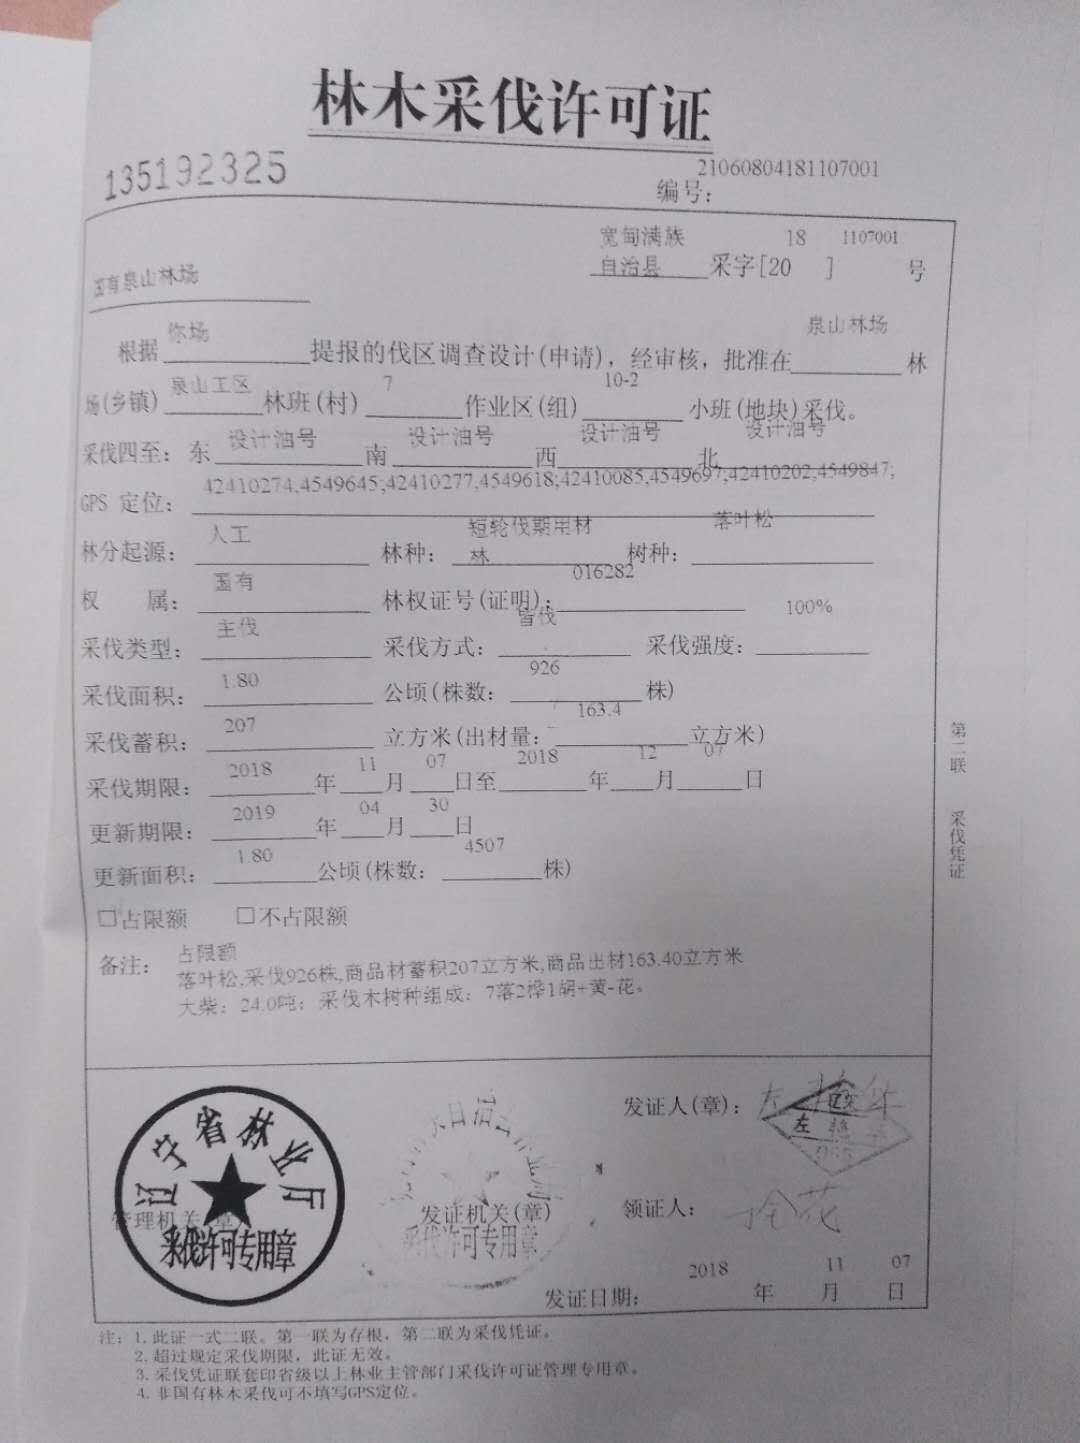 林木采伐许可证
135192325
编号：21060804181107001
国有泉山林场
宽甸满族自治县 采字[2018] 1107001 号
根据 你场 提报的伐区调查设计(申请)，经审核，批准在 泉山林场 林
场(乡镇) 泉山工区 林班(村) 7 作业区(组) 10-2 小班(地块)采伐。
采伐四至：东 设计油号 南 设计油号 西 设计油号 北 设计油号
GPS 定位：42410274,4549645;42410277,4549618;42410085,4549697;42410202,4549847;
林分起源：人工 林种：短轮伐期用材林 树种：落叶松
权 属：国有 林权证号(证明)：016282
采伐类型：主伐 采伐方式：皆伐 采伐强度：100%
采伐面积：1.80 公顷(株数：926 株)
采伐蓄积：207 立方米(出材量：163.4 立方米)
采伐期限：2018 年 11 月 07 日至 2018 年 12 月 07 日
更新期限：2019 年 04 月 30 日
更新面积：1.80 公顷(株数：4507 株)
□占限额 □不占限额
备注：占限额
落叶松,采伐926株,商品材蓄积207立方米,商品出材163.40立方米
大柴：24.0吨；采伐木树种组成：7落2桦1胡+黄-花。
第二联 采伐凭证
辽宁省林业厅
管理机关(章)
采伐许可专用章
发证机关(章)
采伐许可专用章
发证人(章)：
左
领证人：
发证日期：2018 年 11 月 07 日
注：1. 此证一式二联。第一联为存根，第二联为采伐凭证。
2. 超过规定采伐期限，此证无效。
3. 采伐凭证联套印省级以上林业主管部门采伐许可证管理专用章。
4. 非国有林木采伐可不填写GPS定位。